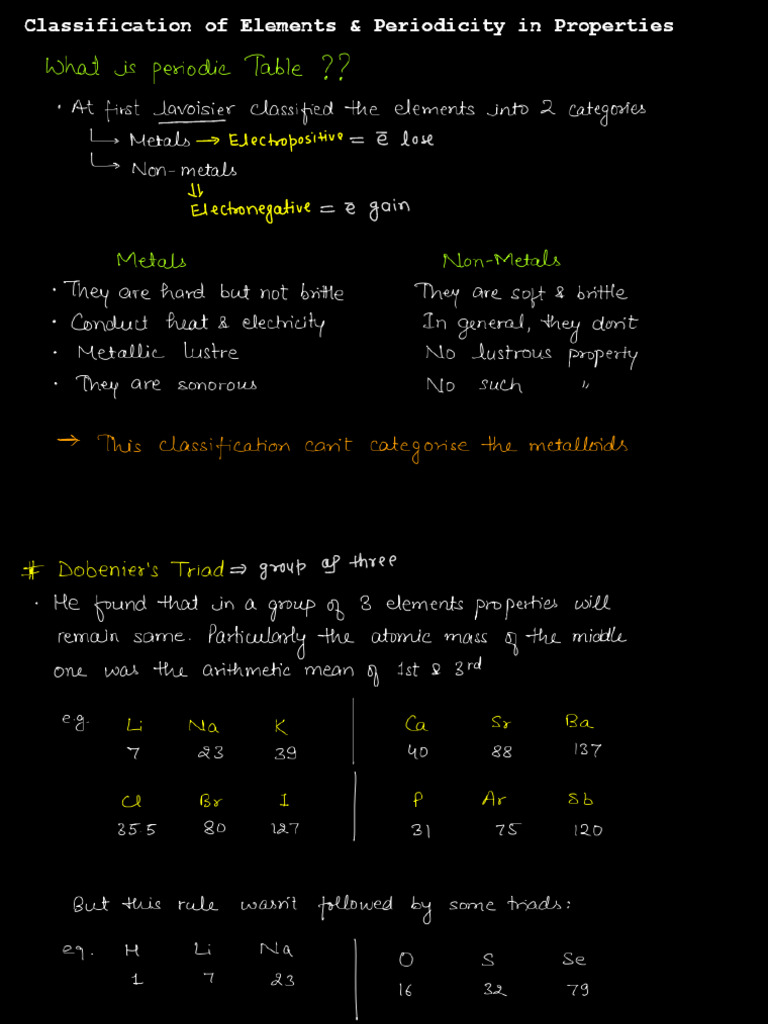 Classification of Elements & Periodicity in Properties
What is periodic Table ??
· At first Lavoisier classified the elements into 2 categories
↳ Metals → Electropositive = ē lose
↳ Non-metals
⇓
Electronegative = ē gain
Metals Non-Metals
· They are hard but not brittle They are soft & brittle
· Conduct heat & electricity In general, they don't
· Metallic lustre No lustrous property
· They are sonorous No such "
→ This classification can't categorise the metalloids
# Dobenier's Triad ⇒ group of three
· He found that in a group of 3 elements properties will
remain same. Particularly the atomic mass of the middle
one was the arithmetic mean of 1st & 3rd
e.g. Li Na K Ca Sr Ba
7 23 39 40 88 137
Cl Br I P Ar Sb
35.5 80 127 31 75 120
But this rule wasn't followed by some triads:
eg. H Li Na O S Se
1 7 23 16 32 79